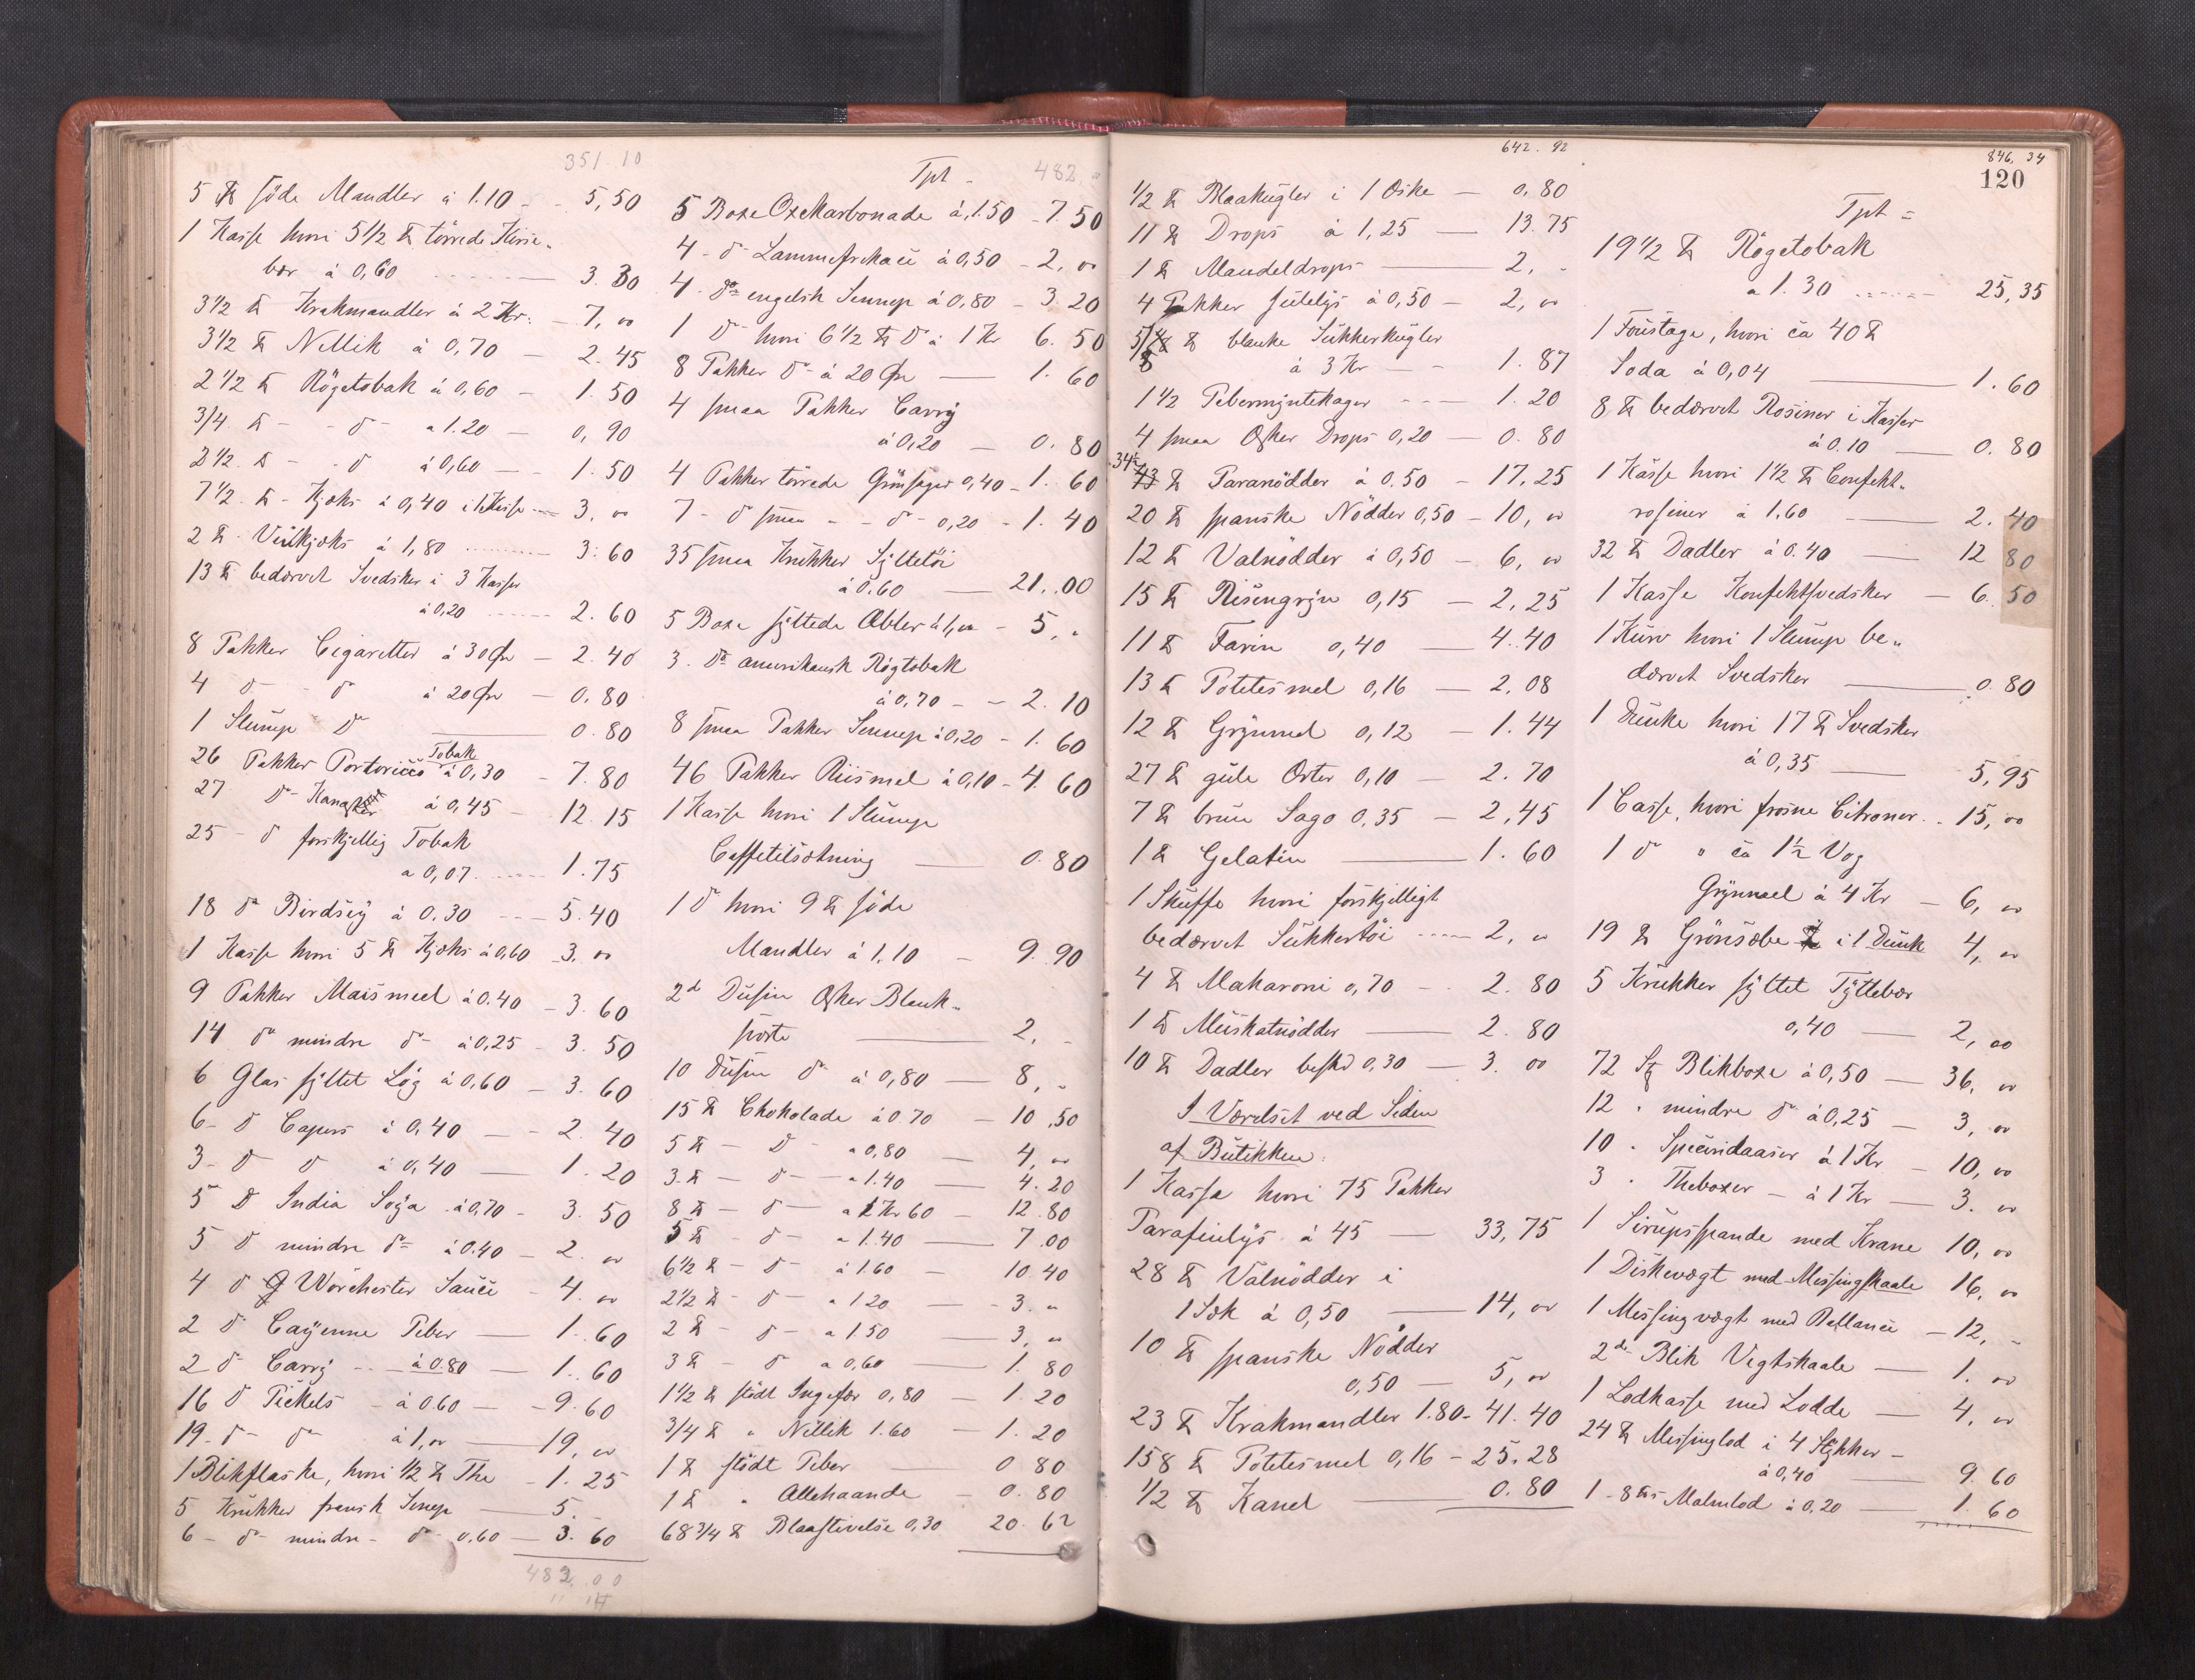 351.10
5 ℔ söde Mandler á 1.10 - - 5,50
1 Kasse hvori 5 1/2 ℔ törrede Kirse-
bær á 0,60 - - - 3.30
3 1/2 ℔ Krakmandler á 2 Kr. - 7, 00
3 1/2 ℔ Nellik á 0,70 - 2.45
2 1/2 ℔ Rögetobak á 0,60 - 1.50
3/4 ℔ - - do - á 1.20 - 0,90
2 1/2 ℔ - - do á 0,60 - 1.50
7 1/2 ℔ - Kjæks á 0,40 i 1 Kasse - 3, 00
2 ℔ Viinkjæks á 1,80 - 3.60
13 ℔ bedærvet Svedsker i 3 Kasser
á 0,20 - 2.60
8 Pakker Cigaretter á 30 Øre - 2.40
4 do - do á 20 Øre - 0.80
1 Slump do - 0.80
26 Pakker Portoricco Tobak á 0,30 - 7.80
27 do - Kanaster á 0,45 - 12.15
25 - do forskjellig Tobak
á 0,07 - 1.75
18 do Birdseÿ á 0.30 - 5.40
1 Kasse hvori 5 ℔ Kjæks á 0,60 - 3. 00
9 Pakker Maismeel á 0.40 - 3.60
14 do mindre do - á 0,25 - 3.50
6 Glas syltet Løg á 0,60 - 3.60
6 - do Capers á 0.40 - 2.40
3 - do do á 0,40 - 1.20
5 do India Soÿa á 0,70 - 3.50
5 do mindre do á 0.40 - 2. 00
4 do Worchester Sauce - 4. 00
2 do Caÿenne Peber - 1.60
2 do Carry - á 0.80 - 1.60
16 do Pickels - á 0.60 - 9.60
19 - do - do á 1,00 - 19, 00
1 Blikflaske, hvori 1/2 ℔ The - 1.25
5 Krukker fransk Senep - 5. -
6 - do mindre - do 0,60 - 3.60
482.00
Tpt - 482
5 Boxe Oxekarbonade á 1.50 - 7.50
4 - do Lammefrikacé á 0,50 - 2, 00
4 - do engelsk Sennep á 0,80 - 3.20
1 do hvori 6 1/2 ℔ do á 1 Kr 6.50
8 Pakker do - á 20 Øre - 1.60
4 smaa Pakker Carrÿ
á 0,20 - 0.80
4 Pakker törrede Grönsager 0,40 - 1.60
7 - do smaa - - do - 0,20 - 1.40
35 smaa Krukker Sÿltetöi
á 0.60 - 21.00
5 Boxe sÿltede Æbler á 1,00 - 5, -
3. do amerikansk Røgtobak
á 0,70 - 2.10
8 smaa Pakker Sennep á 0,20 - 1.60
46 Pakker Riismel á 0,10 - 4.60
1 Kasse hvori 1 Slump
Caffetilsætning - 0.80
1 do hvori 9 ℔ söde
Mandler á 1.10 - 9.90
2 Dusin Æsker Blank-
sværte - 2, -
10 Dusin do á 0,80 - 8, -
15 ℔ Chokolade á 0.70 - 10,50
5 ℔ - do - á 0,80 - 4, 00
3 ℔ - do - á 1.40 - 4.20
8 ℔ - do - á 1 Kr 60 - 12.80
5 ℔ - do - á 1.40 - 7.00
6 1/2 ℔ - do - á 1.60 - 10.40
2 1/2 ℔ - do - á 1.20 - 3. -
2 ℔ - do - á 1.50 - 3, 00
3 ℔ - do á 0,60 - 1.80
1 1/2 ℔ stödt Ingefær 0,80 - 1.20
3/4 ℔ " Nellik 1.60 - 1.20
1 ℔ stödt Peber - 0.80
1 ℔ " Allehaande - 0.80
68 3/4 ℔ Blaastivelse 0,30 20.62
642.92
1/2 ℔ Blaakugler i 1 Æske - 0,80
11 ℔ Drops á 1,25 - 13.75
1 ℔ Mandeldrops - 2, -
4 Pakker Julelÿs á 0,50 - 2, 00
5/8 ℔ blanke Sukkerkugler
á 3 Kr - 1.87
1 1/2 Pebermÿntekager - 1.20
4 smaa Æsker Drops 0,20 - 0.80
34 1/2 ℔ Paranödder á 0.50 - 17,25
20 ℔ spanske Nödder 0,50 - 10, 00
12 ℔ Valnödder á 0,50 - 6, 00
15 ℔ Risengrÿn 0,15 - 2,25
11 ℔ Farin 0,40 - 4.40
13 ℔ Potetesmel 0,16 - 2,08
12 ℔ Grÿnmel 0,12 - 1.44
27 ℔ gule Erter 0,10 - 2.70
7 ℔ brun Sago 0,35 - 2,45
1 ℔ Gelatin - 1.60
1 Skuffe hvori forskjelligt
bedærvet Sukkertöi - 2, 00
4 ℔ Makaroni 0,70 - 2.80
1 ℔ Muskatnödder - 2.80
10 ℔ Dadler beskd 0,30 - 3. 00
I Værelset ved Siden
af Butikken.
1 Kasse hvori 75 Pakker
Parafinlÿs á 45 - 33,75
28 ℔ Valnödder i
1 Sæk á 0,50 - 14, 00
10 ℔ spanske Nödder
0,50 - 5, 00
23 ℔ Krakmandler 1.80 - 41.40
158 ℔ Potetesmel 0,16 - 25.28
1/2 ℔ Kanel - 0.80
846,34
120
Tpt -
19 1/2 ℔ Rögetobak
á 1.30 - 25,35
1 Foustage, hvori ca 40 ℔
Soda á 0,04 - 1.60
8 ℔ bedærvet Rosiner i Kasser
á 0.10 - 0.80
1 Kasse hvori 1 1/2 ℔ Confekt-
rosiner á 1.60 - 2.40
32 ℔ Dadler á 0.40 - 12 80
1 Kasse Konfektsvedsker - 6.50
1 Kurv hvori 1 Slump be-
dærvet Svedsker - 0.80
1 Dunke hvori 17 ℔ Svedsker
á 0,35 - 5,95
1 Casse, hvori frosne Citroner - 15, 00
1 do " ca 1 1/2 Vog
Grÿnmel á 4 Kr - 6, 00
19 ℔ Grönsæbe i 1 Dunk 4, 00
5 Krukker sÿltet Tÿttebær
0,40 - 2, 00
72 St Blikboxe á 0,50 - 36, 00
12 " mindre do á 0,25 - 3, 00
10 " Specindaaser á 1 Kr - 10, 00
3 " Theboxer - á 1 Kr - 3. 00
1 Sirupsspande med Krane 10, 00
1 Diskevægt med Messingskaale 16, 00
1 Messingvægt med Ballance - 12, -
2de Blik Vegtskaale - 1. 00
1 Lodkasse med Lodde - 4, 00
24 ℔ Messinglod i 4 Stÿkker -
á 0,40 9.60
1 - 8 ℔s Malmlod á 0,20 - 1.60